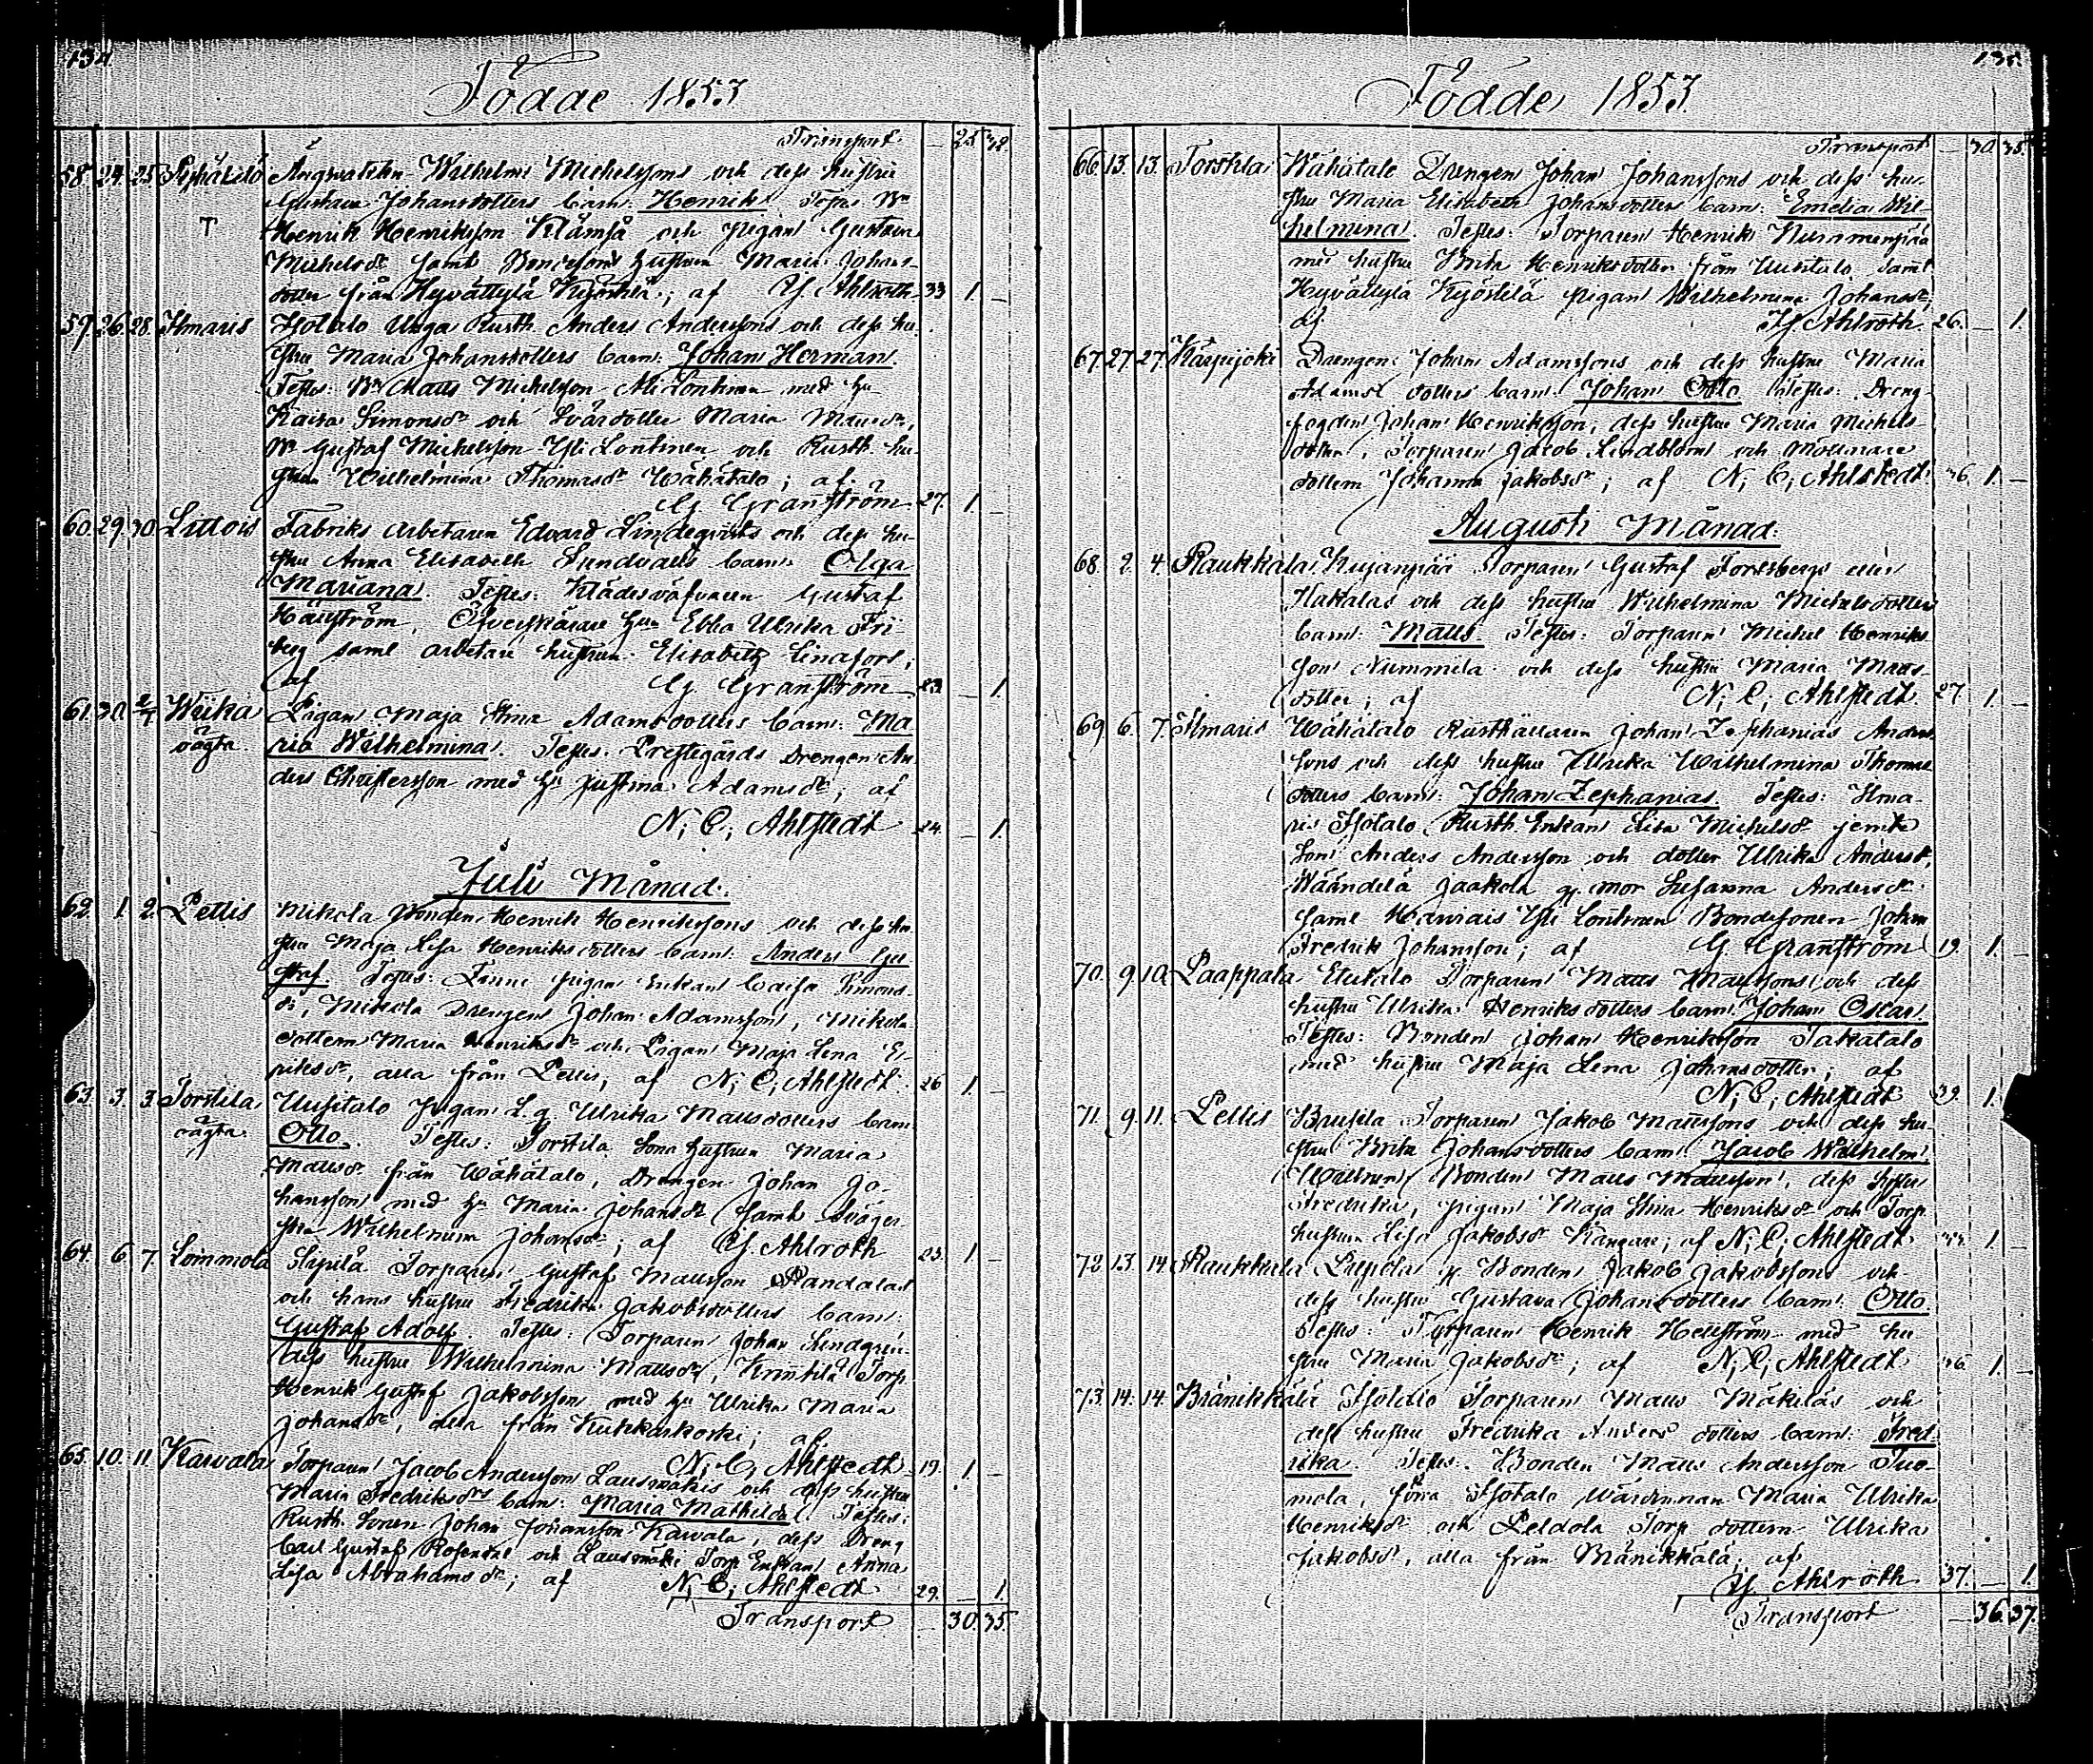 134
Födde 1853
Transport — 25 32.
58. 24. 25. Ängvaktaren Wilhelm Michelssons och dess hustru
Gustava Johansdotters barn: Henrik. Testes: Bn
T Henrik Henriksson Klämsä och pigan Gustava
Michelsdr samt Bondesons hustrun Maria Johans-
dotter från Hyvättylä Kyöstilä; af Y. Ahlroth 33 1. —
59. 26. 28. Ilmaris Isotalo Unga Rusth. Anders Anderssons och dess hu-
stru Maria Johansdotters barn: Johan Herman.
Testes: Bn Matts Michelsson Ali Lontinen med hu
Kaisa Simonsdr och Svärdotter Maria Mattsdr,
Bn Gustaf Michelsson Yli Lontinen och Rusth. hu-
strun Wilhelmina Thomasdr Wähätalo; af
G. Granström 27. 1 —
60. 29. 30. Littois Fabriks arbetaren Edvard Lindeqvists och dess hu-
stru Anna Elisabeth Sundvalls barn: Olga
Mariana. Testes: Klädesväfvaren Gustaf
Hällström, Öfverskärare hun Ebba Ulrika Fri-
berg samt arbetare hustrun Elisabeth Linafors;
af G. Granström 23. — 1
61. 30. 2/7 Wiika Pigan Maja Stina Adamsdotters barn: Ma-
oägta ria Wilhelmina. Testes: Prestegårds Drengen An-
ders Christersson med hu Justina Adamsdr; af
N. C. Ahlstedt 24. — 1.
Juli Månad.
62. 1. 2. Pettis Mikola Bonden Henrik Henrikssons och dess hu-
stru Maja Lisa Henriksdotters barn: Anders Gu-
staf. Testes: pigan Enkan Caisa Simons-
dr, Mikola Drengen Johan Adamsson, Mikola
dottern Maria Henriksdr och Pigan Maja Lena E-
riksdr, alla från Pettis; af N. C. Ahlstedt. 26 1. —
63. 3. 3. Torstila Uusitalo Pigan L. q. Ulrika Mattsdotters barn
oägta Otto. Testes: Torstila Sona hustrun Maria
Mattsdr från Wähätalo, Drengen Johan Jo-
hansson med hu Maria Johansdr samt Sväger-
ska Wilhelmina Johansdr; af Y. Ahlroth 23. 1. —
64. 6 7. Loimmola Sipilä Torparen Gustaf Mattsson Randalas
och hans hustru Fredrika Jakobsdotters barn:
Gustaf Adolf. Testes: Torparen Johan Lindgren
dess hustru Wilhelmina Mattsdr, Torp.
Henrik Gustaf Jakobsson med hu Ulrika Maria
Johansdr, alla från Kukkarkoski; af
N. C. Ahlstedt 19. 1. —
65. 10. 11 Kawala Torparen Jacob Andersson Lausmäkis och dess hustru
Maria Fredriksdrs barn: Maria Mathilda. Testes:
Rusth. Sonen Johan Johansson Kawala, dess Dreng
Carl Gustaf Rosendal och Lausmäki Torp. Enkan Anna
Lisa Abrahamsdr; af N. C. Ahlstedt 29. — 1.
Transport — 30. 35.
135.
Födde 1853
Transport — 30. 35.
66. 13. 13. Torstila Wähätalo Drengen Johan Johanssons och dess hu-
stru Maria Elisabeth Johansdotters barn: Emelia Wil-
helmina. Testes: Torparen Henrik Nummenpää
med hustru Brita Henriksdotter från Uusitalo samt
Hyvättylä Kyöstilä pigan Wilhelmina Johansdr;
af Y. Ahlroth 26. — 1.
67. 27. 27. Karpijoki Drengen Johan Adamssons och dess hustru Maria
Adams dotters barn: Johan Otto. Testes: Dreng-
fogden Johan Henriksson, dess hustru Maria Michels-
dotter, Torparen Jacob Lindblom och Molinare
dottern Johanna Jakobsdr; af N. C. Ahlstedt 36. 1. —
Augusti Månad.
68. 2. 4. Raukkala Kujanpää Torparen Gustaf Forsbergs eller
Hakalas och dess hustru Wilhelmina Michelsdotters
barn: Matts. Testes: Torparen Michel Henriks-
son Nummila och dess hustru Maria Matts-
dotter; af N. C. Ahlstedt. 27 1. —
69. 6. 7. Ilmaris Wähätalo Rusthållaren Johan Zephanias Anders-
sons och dess hustru Ulrika Wilhelmina Thomas
dotters barn: Johan Zephanias. Testes: Ilma-
ris Isotalo Rusth. Enkan Lisa Michelsdr jemte
Son Anders Andersson och dotter Ulrika Andersdr,
Wäändelä Jaakola gl. mor Susanna Andersdr
samt Yli Lontinen Bondesonen Johan
Fredrik Johansson; af G. Granström 19. 1. —
70. 9. 10. Paappala Ylitalo Torparen Matts Mattssons och dess
hustru Ulrika Henriksdotters barn: Johan Oscar.
Testes: Bonden Johan Henriksson Takatalo
med hustru Maja Lena Johansdotter; af
N. C. Ahlstedt 39. 1.
71. 9. 11. Pettis Brusila Torparen Jakob Mattssons och dess hu-
stru Brita Johansdotters barn: Jacob Wilhelm.
Bonden Matts Mattsson, dess Syster
Fredrika, pigan Maja Stina Henriksdr och Torp.
hustrun Lisa Jakobsdr Kangare; af N. C. Ahlstedt 1. —
72. 13. 14. Raukkala Bonden Jakob Jakobssons och
dess hustru Gustava Johansdotters barn: Otto
Testes: Torparen Henrik Hellström med hu-
stru Maria Jakobsdr; af N. C. Ahlstedt 36 1. —
73. 14. 14. Bränikkälä Isotalo Torparen Matts Mäkeläs och
dess hustru Fredrika Anders dotters barn: Fred-
rika. Testes: Bonden Matts Andersson Tuo-
mola, förra Isotalo Wärdinnan Maria Ulrika
Henriksdr och Peldola Torp. dottern Ulrika
Jakobsdr, alla från Bränikkälä; af
Y. Ahlroth 37. — 1.
Transport — 36. 37.